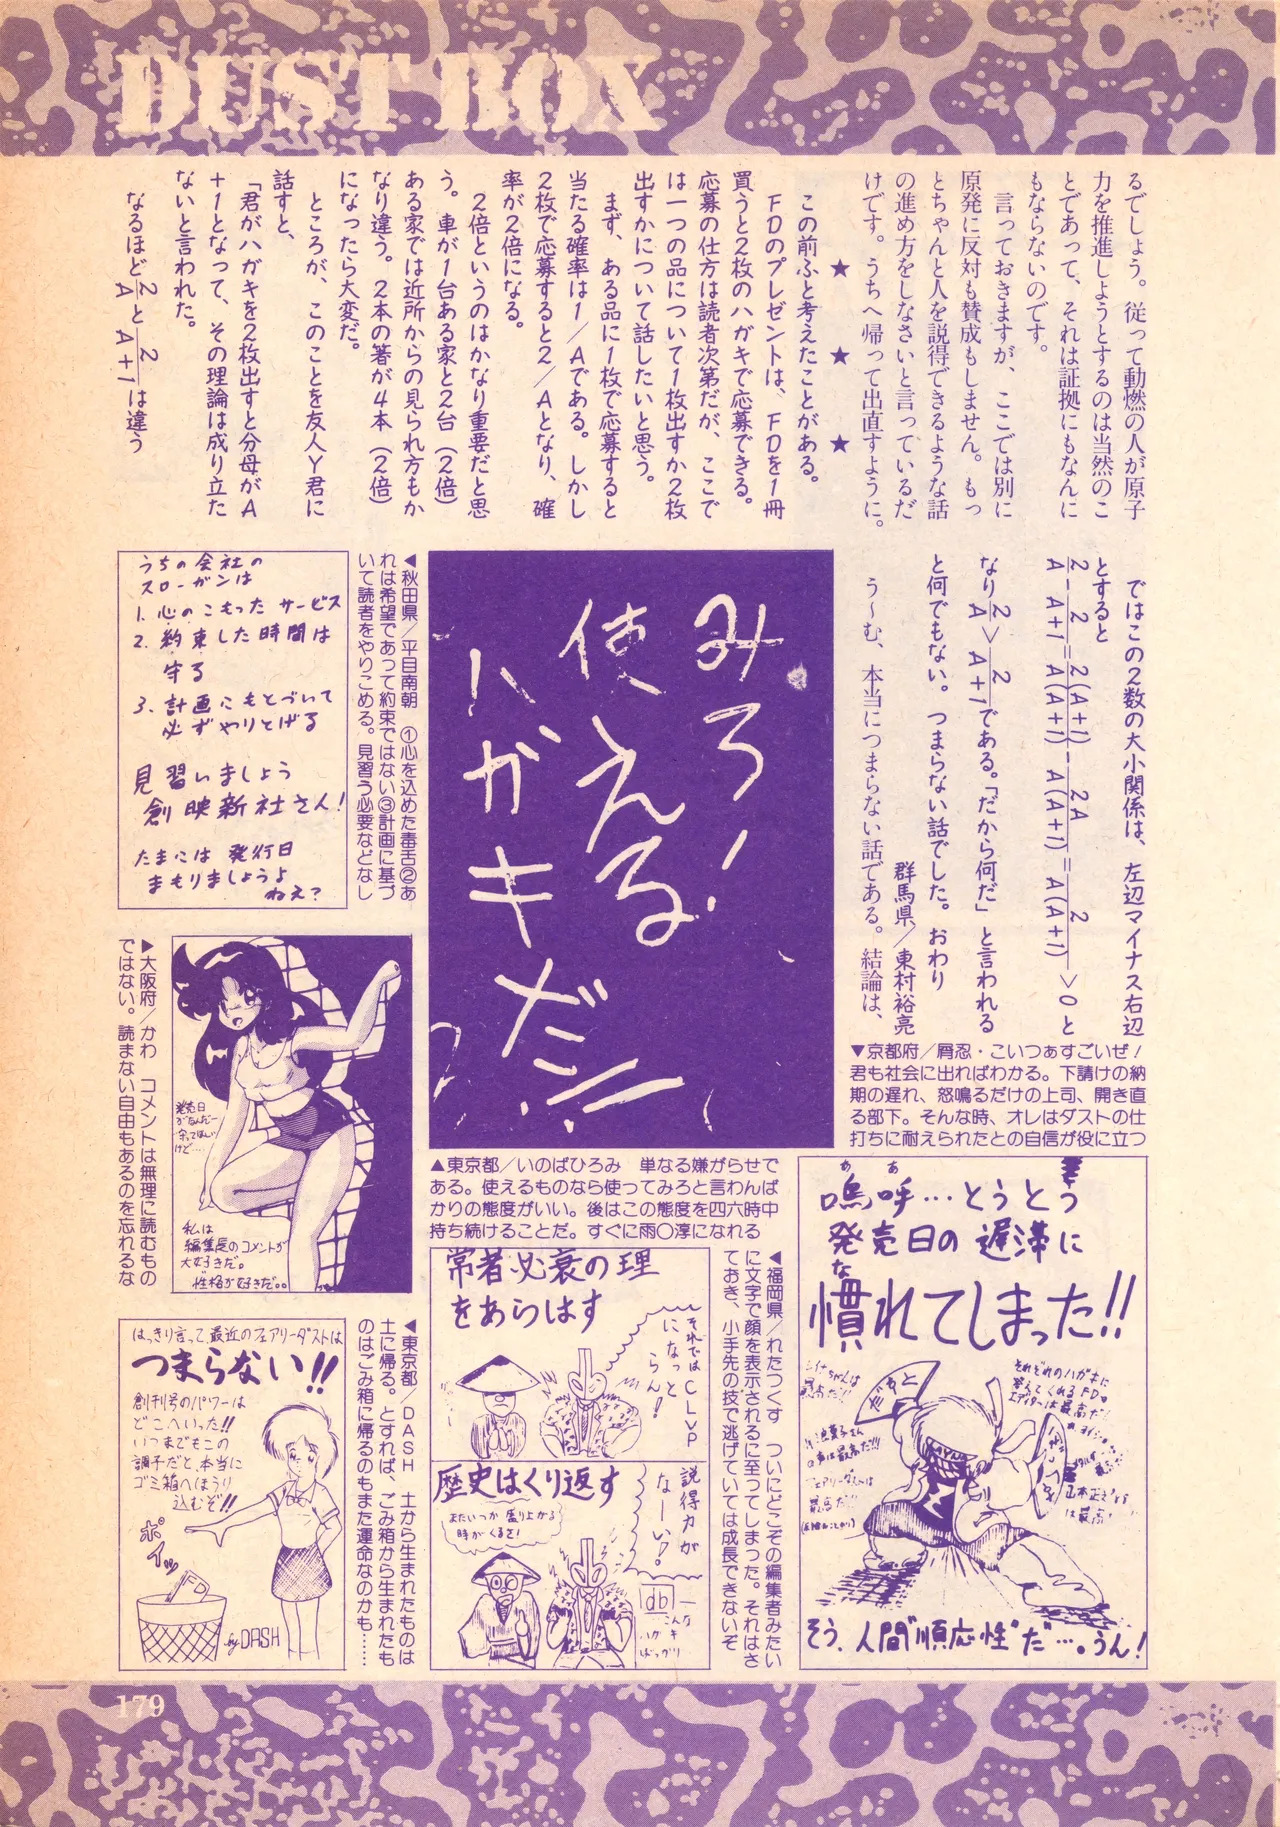 DUST BOX
るでしょう。従って動燃の人が原子
力を推進しようとするのは当然のこ
とであって、それは証拠にもなんに
もならないのです。
言っておきますが、ここでは別に
原発に反対も賛成もしません。もっ
とちゃんと人を説得できるような話
の進め方をしなさいと言っているだ
けです。うちへ帰って出直すように。
★ ★ ★
この前ふと考えたことがある。
FDのプレゼントは、FDを1冊
買うと2枚のハガキで応募できる。
応募の仕方は読者次第だが、ここで
は一つの品について1枚出すか2枚
出すかについて話したいと思う。
まず、ある品に1枚で応募すると
当たる確率は1/Aである。しかし
2枚で応募すると2/Aとなり、確
率が2倍になる。
2倍というのはかなり重要だと思
う。車が1台ある家と2台(2倍)
ある家では近所からの見られ方もか
なり違う。2本の箸が4本(2倍)
になったら大変だ。
ところが、このことを友人Y君に
話すと、
「君がハガキを2枚出すと分母がA
+1となって、その理論は成り立た
ないと言われた。
なるほど2/Aと2/A+1は違う
ではこの2数の大小関係は、左辺マイナス右辺
とすると
2/A-2/A+1=2(A+1)/A(A+1)-2A/A(A+1)=2/A(A+1)>0と
なり2/A>2/A+1である。「だから何だ」と言われる
と何でもない。つまらない話でした。おわり
群馬県/東村裕亮
う~む、本当につまらない話である。結論は、
▼京都府/屑忍・こいつぁすごいぜ!
君も社会に出ればわかる。下請けの納
期の遅れ、怒鳴るだけの上司、開き直
る部下。そんな時、オレはダストの仕
打ちに耐えられたとの自信が役に立つ
嗚呼…とうとう
ああ
発売日の遅滞に
慣れてしまった!!
な
それぞれのハガキに
答えてくれるFDの
エディターは最高だ!
そう、人間"順応性"だ"…。うん!
みろ!
使える
ハガキだ!!
▲東京都/いのばひろみ 単なる嫌がらせで
ある。使えるものなら使ってみろと言わんば
かりの態度がいい。後はこの態度を四六時中
持ち続けることだ。すぐに雨○淳になれる
◀福岡県/れたつくす ついにどこぞの編集者みたい
に文字で顔を表示されるに至ってしまった。それはさ
ておき、小手先の技で逃げていては成長できないぞ
常者必衰の理
をあらはす
それでは
CLVP
になっと
らん!
歴史はくり返す
またいつか盛り上がる
時がくるさ!
説得力が
なーい!
db
こんな
ハガキ
ばっかり
◀秋田県/平目南朝 ①心を込めた毒舌②あ
れは希望であって約束ではない③計画に基づ
いて読者をやりこめる。見習う必要などなし
うちの会社の
スローガンは
1. 心のこもったサービス
2. 約束した時間は
守る
3. 計画にもとづいて
必ずやりとげる
見習いましょう
創映新社さん!
たまには発行日
まもりましょうよ
ねえ?
▶大阪府/かわ コメントは無理に読むもの
ではない。読まない自由もあるのを忘れるな
発売日
がなんだー
待ってほしい
けど…
私は
編集長のコメントが
大好きだ。
性格が好きだ。。
◀東京都/DASH 土から生まれたものは
土に帰る。とすれば、ごみ箱から生まれたも
のはごみ箱に帰るのもまた運命なのかも……
はっきり言って、最近のフェアリーダストは
つまらない!!
創刊号のパワーは
どこへいった!!
いつまでもこの
調子だと、本当に
ゴミ箱へほうり
込むぞ!!
ポイッ
FD
by DASH
179